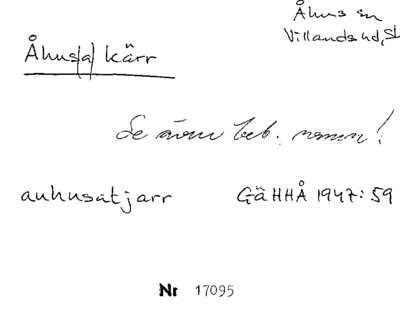 Åhus sn
Villands hd, Sk
Åhus(a) kärr
Se även beb. namn!
auhusatjarr GäHHÅ 1947: 59
Nr 17095